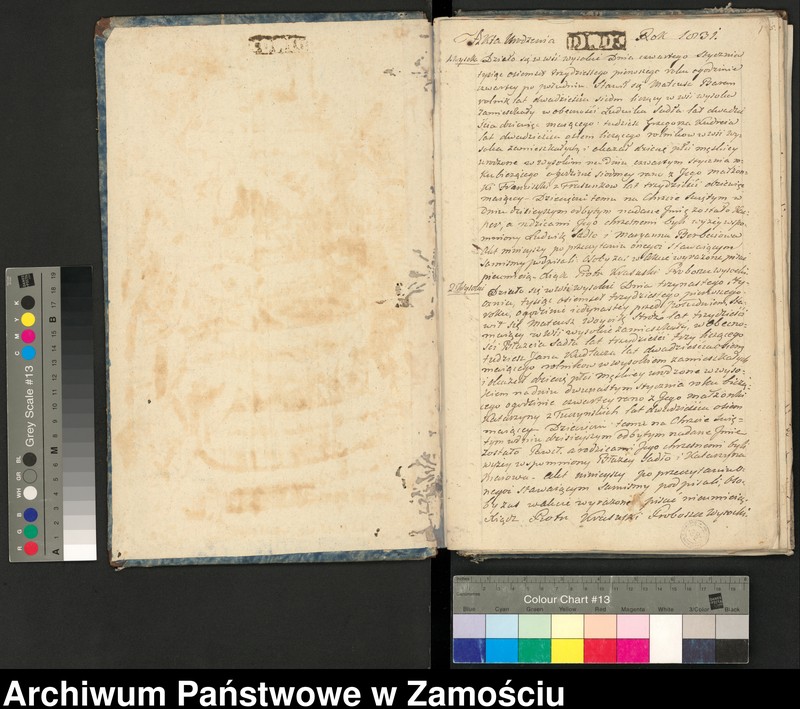 Akta Urodzenia Rok 1831.
Działo się w wsi wysokie Dnia czwartego Stycznia
tysiąc osiemset trzydziestego pierwszego roku o godzinie
czwartey po południu Stawił się Mateusz Baran
rolnik lat dwadzieścia siedm liczący w wsi wysokie
zamieszkały w obecności Ludwika Sadła lat dwadzie
ścia dziewięć maiącego tudzież Grzegorza
lat dwadzieścia osiem liczącego rolników w wsi wy-
sokie zamieszkałych i okazał dziecię płci męskiey
urodzone w wysokim na dniu czwartym stycznia
bieżącego o godzinie siodmey rano z Jego małżon
ki Franciszki z lat trzydzieści
maiącey Dziecięciu temu na Chrzcie Świętym w
dniu dzisieyszym odbytym nadane Imię zostało
a rodzicami Jego chrzestnemi byli wyżey wspo-
mniony Ludwik Sadło i Maryanna
Akt ninieyszy po przeczytaniu onego stawaiącym
Samiśmy podpisali. Osoby zaś w akcie wyrażone pisać
nieumieią. Xiądz Piotr Krasuski Proboszcz wysocki
2 Wysokie
Działo się w wsi wysokie Dnia trzynastego Sty-
cznia, tysiąc osiemset trzydziestego pierwszego
roku, o godzinie iedynastey przed południem Sta-
wił się Mateusz Woycik lat trzydzieści
maiący w wsi wysokie zamieszkały, w obecno-
ści Błażeia Sadła lat trzydzieści trzy liczącego
tudzież Jana Kudłacza lat dwadzieścia
maiącego rolników w wysokiem zamieszkałych
i okazał dziecię płci męskiey urodzone w wyso-
kiem na dniu dwunastym Stycznia roku bieżą-
cego o godzinie czwartey rano z Jego małżonki
Katarzyny z lat dwadzieścia ośm
maiącey Dziecięciu temu na Chrzcie Świę-
tym w dniu dzisieyszym odbytym nadane Imie
zostało Paweł, a rodzicami Jego chrzestnemi byli
wyżey wspomniony Błażey Sadło i Katarzyna
Akt ninieyszy po przeczytaniu o-
negoż Stawaiącym Samiśmy podpisali Oso-
by zaś w akcie wyrażone pisać nieumieią.
Xiądz Piotr Krasuski Proboszcz Wysocki.
Grey Scale #13
Colour Chart #13
Blue Cyan Green Yellow Red Magenta White 3/Color Black
Archiwum Państwowe w Zamościu